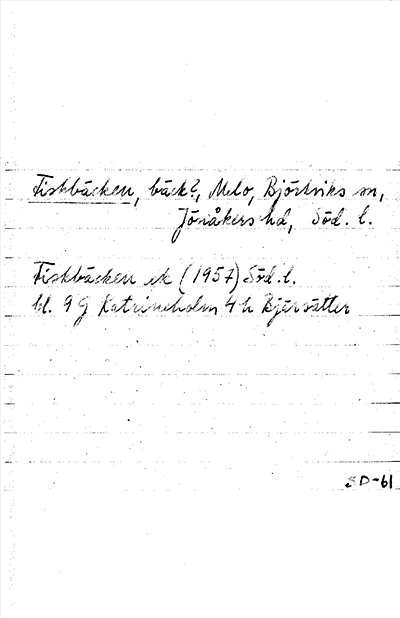 Fiskbäcken, bäck?, Melo, Björkviks sn,
Jönåkers hd, Söd. l.
Fiskbäcken ek (1957) Söd. l.
bl. 9 G Katrineholm 4 h Bjérsätter
SD-61